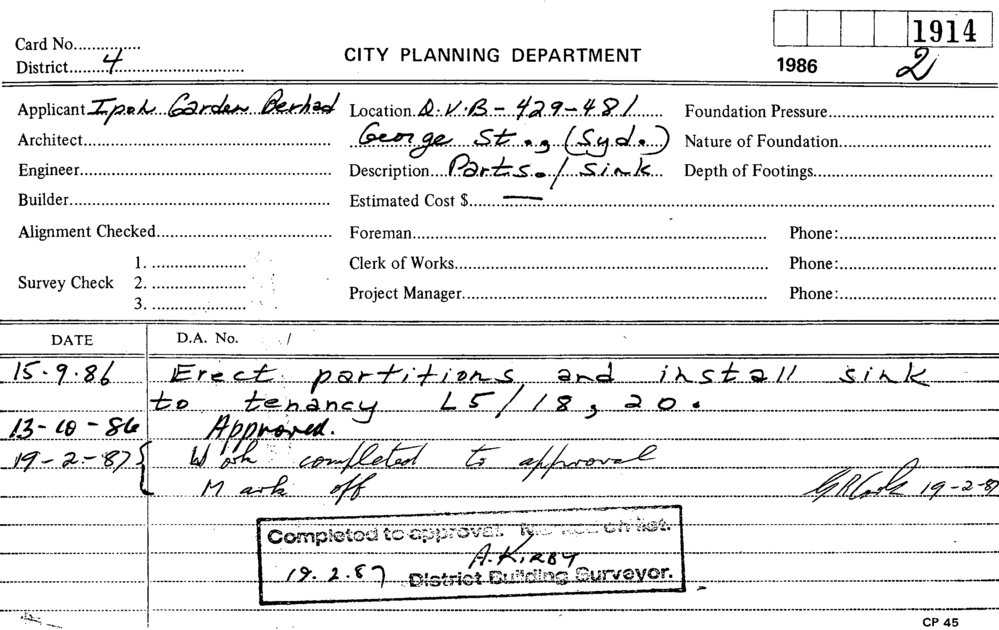 1914
Card No...............
District........4..............................
CITY PLANNING DEPARTMENT
1986 2
Applicant Ipoh Garden Berhad Location Q.V.B - 429-481 Foundation Pressure
Architect George St., (Syd.) Nature of Foundation
Engineer Description Parts./sink Depth of Footings
Builder Estimated Cost $ —
Alignment Checked Foreman Phone:
Survey Check 1. Clerk of Works Phone:
2.
3. Project Manager Phone:
DATE D.A. No. /
15.9.86 Erect partitions and install sink
to tenancy L5/18, 20.
13-10-86 Approved.
19-2-87 Work completed to approval
Mark off 19-2-87
Completed to approval. Marked on list.
A. KIRBY
19.2.87 District Building Surveyor.
CP 45